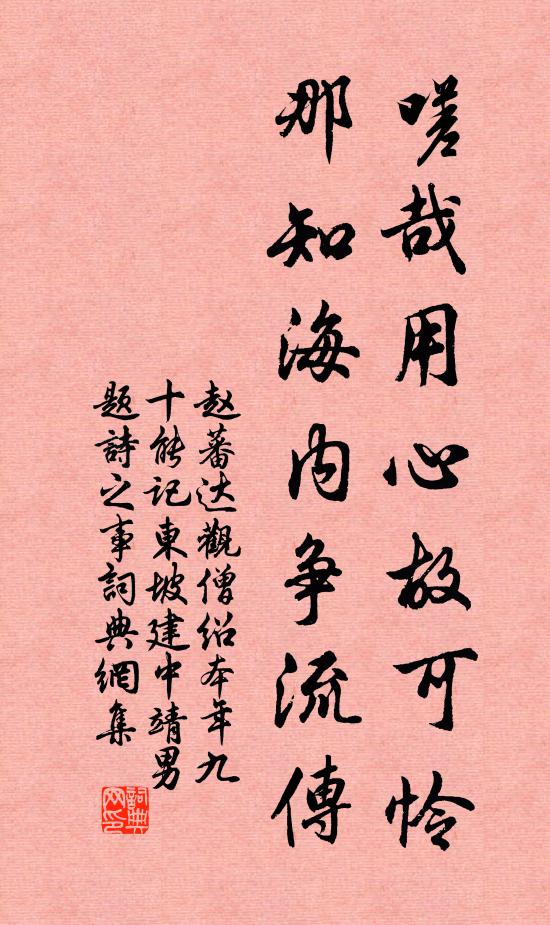 嗟哉用心故可怜
那知海内争流傳
赵蕃达觀僧绍本年九
十能记東坡建中靖男
题詩之事詞典網集
詞典网印